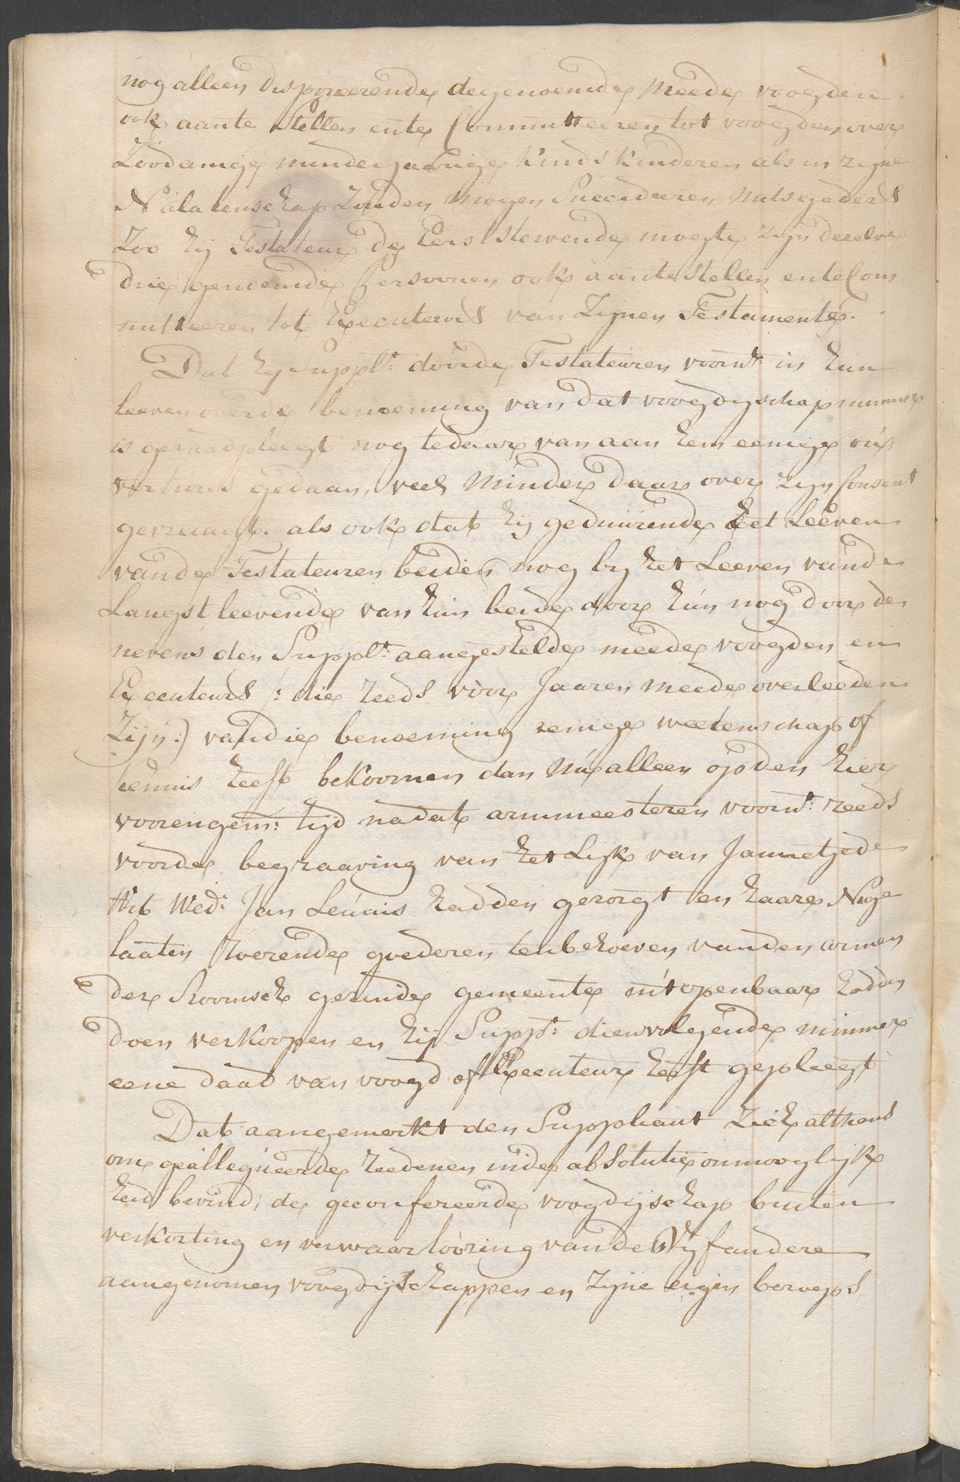 nog alleen disponeerende de genoemde meede voogden
ook aante stellen ente Committeeren tot voogden over
Zoodanige minderjaarige kinds kinderen als in zijne
Nalatenschap Zouden mogen Succedeeren mitsgaders
Zoo hij Testateur de Eerststervende mogte zijn deselve
drie genoemde Persoonen ook aantestellen enteCom
mitteeren tot Executeurs van Zijnen Testamente.
Dat hij Supplt: doorde Testateuren voornt in hun
leeven overde benoeming van dat voogdijschap nimmer
is geraadpleegt nog tedaar van aan hem eenige ou
vertures gedaan, veel Minder daar over zijn Consent
gevraagt. als ook dat hij geduurende het Leeven
vande Testateuren beiden nog bij het Leeven vande
Langstleevende van hun beide door hun nog door de
nevens den Supplt: aangestelde meede voogden en
Executeurs (: die reeds voor Jaaren meede overleeden
Zijn:) van die benoeming eenige weetenschap of
kennis heeft bekoomen dan Nu alleen opden hier
voorengem: tijd nadat armmeesteren voornt: reeds
voorde begraaving van het Lijk van Jannetje de
Wit Wed: Jan Leúnis hadden gezorgt en haare Nage
laaten roerende goederen tenbehoeven vanden armen
der Roomsch gezinde gemeente int openbaar hadden
doen verkoopen en hij Supplt: dienvolgende nimmer
eene daad van voogd of Executeur heeft gepleegt
Dat aangemerkt den Suppliant Zich althans
om geällegueerde Reedenen inde absolutie onmooglijk
heid bevind; de geconfereerde voogdijschap buiten
verkorting en verwaarloozing vande Vijf andere
aangenomen voogdijschappen en Zijne eigen beroeps